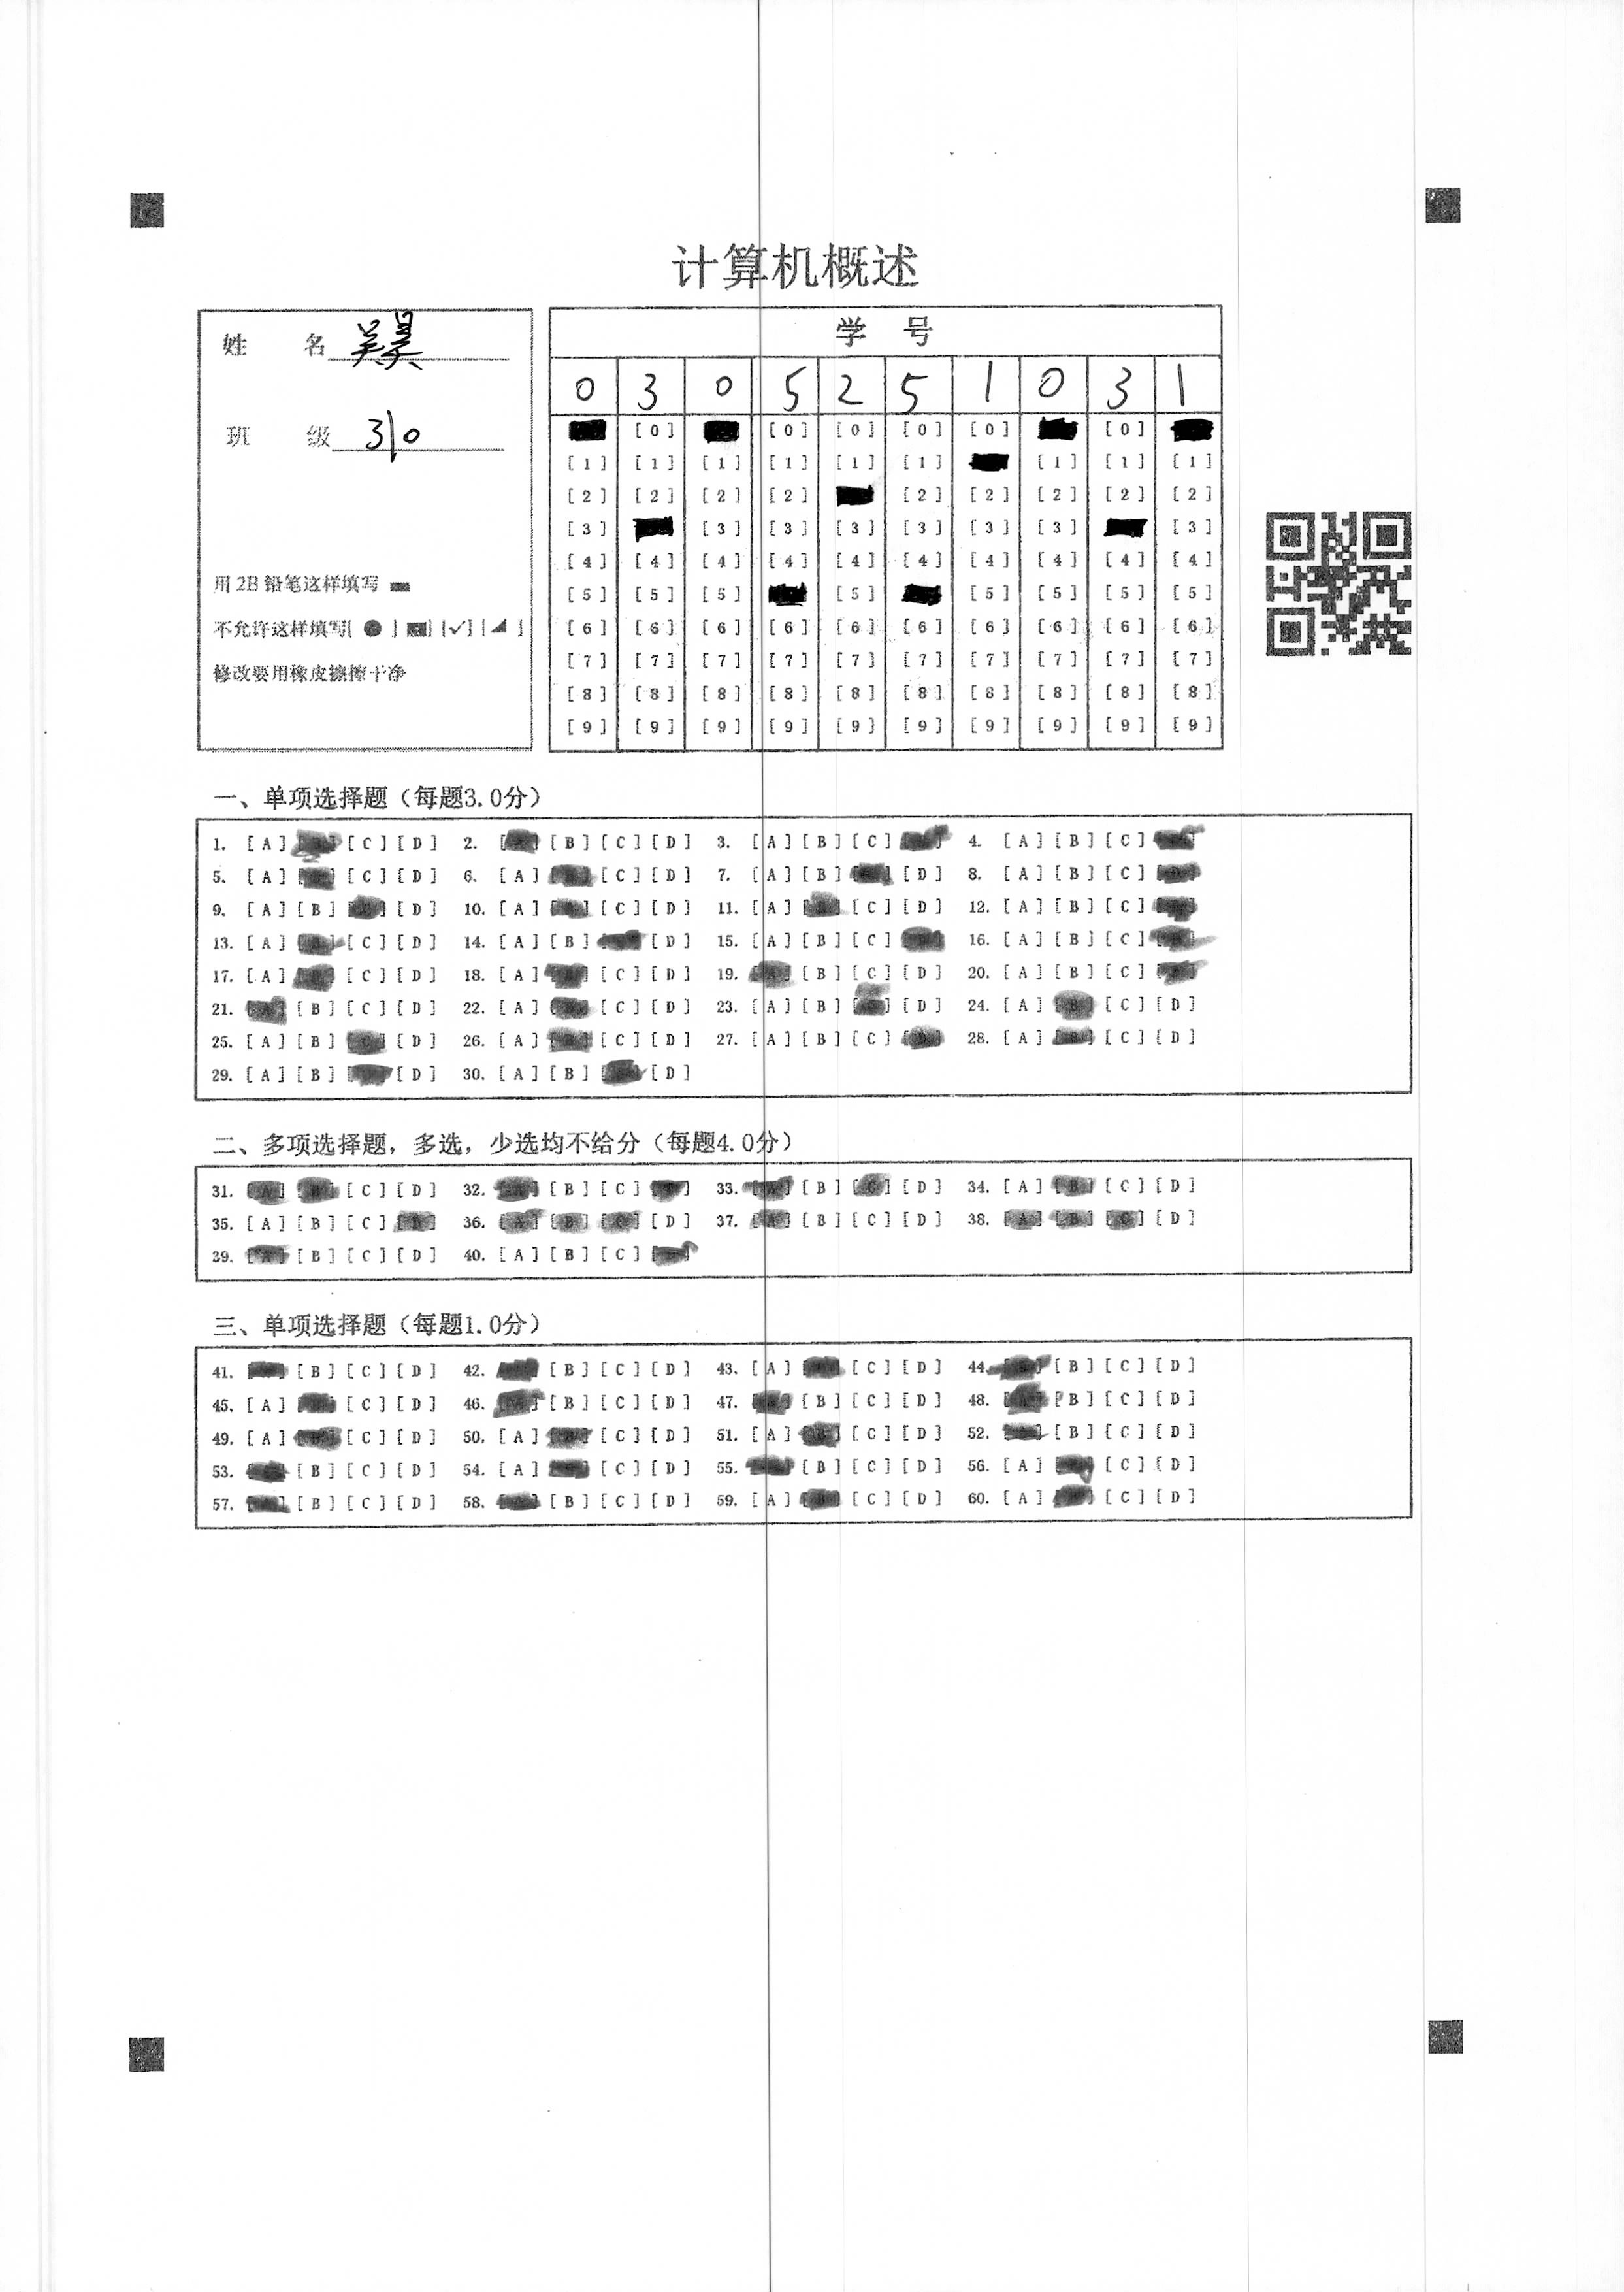 计算机概述
姓 名
班 级 310
用2B铅笔这样填写
不允许这样填写[ ● ] [■] [✓] [◢ ]
修改要用橡皮擦擦干净
学 号
0 3 0 5 2 5 1 0 3 1
[0] [0] [0] [0] [0] [0]
[1] [1] [1] [1] [1] [1] [1] [1] [1]
[2] [2] [2] [2] [2] [2] [2] [2] [2]
[3] [3] [3] [3] [3] [3] [3] [3]
[4] [4] [4] [4] [4] [4] [4] [4] [4] [4]
[5] [5] [5] [5] [5] [5] [5] [5]
[6] [6] [6] [6] [6] [6] [6] [6] [6] [6]
[7] [7] [7] [7] [7] [7] [7] [7] [7] [7]
[8] [8] [8] [8] [8] [8] [8] [8] [8] [8]
[9] [9] [9] [9] [9] [9] [9] [9] [9] [9]
一、单项选择题（每题3.0分）
1. [A] [C] [D] 2. [B] [C] [D] 3. [A] [B] [C] 4. [A] [B] [C]
5. [A] [C] [D] 6. [A] [C] [D] 7. [A] [B] [D] 8. [A] [B] [C]
9. [A] [B] [D] 10. [A] [C] [D] 11. [A] [C] [D] 12. [A] [B] [C]
13. [A] [C] [D] 14. [A] [B] [D] 15. [A] [B] [C] 16. [A] [B] [C]
17. [A] [C] [D] 18. [A] [C] [D] 19. [B] [C] [D] 20. [A] [B] [C]
21. [B] [C] [D] 22. [A] [C] [D] 23. [A] [B] [D] 24. [A] [B] [C] [D]
25. [A] [B] [D] 26. [A] [C] [D] 27. [A] [B] [C] 28. [A] [C] [D]
29. [A] [B] [D] 30. [A] [B] [D]
二、多项选择题，多选，少选均不给分（每题4.0分）
31. [A] [B] [C] [D] 32. [B] [C] 33. [B] [C] [D] 34. [A] [B] [C] [D]
35. [A] [B] [C] 36. [A] [B] [C] [D] 37. [A] [B] [C] [D] 38. [A] [B] [C] [D]
39. [A] [B] [C] [D] 40. [A] [B] [C]
三、单项选择题（每题1.0分）
41. [B] [C] [D] 42. [B] [C] [D] 43. [A] [C] [D] 44. [B] [C] [D]
45. [A] [C] [D] 46. [B] [C] [D] 47. [B] [C] [D] 48. [B] [C] [D]
49. [A] [C] [D] 50. [A] [C] [D] 51. [A] [C] [D] 52. [B] [C] [D]
53. [B] [C] [D] 54. [A] [C] [D] 55. [B] [C] [D] 56. [A] [C] [D]
57. [B] [C] [D] 58. [B] [C] [D] 59. [A] [C] [D] 60. [A] [C] [D]